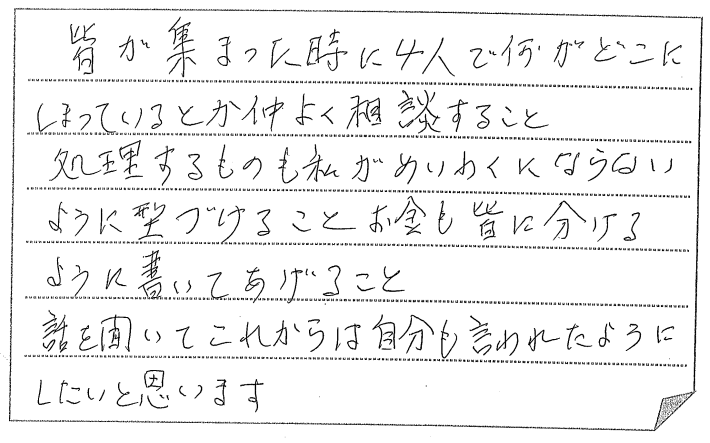 皆が集まった時に4人で何がどこに
しまっているとか仲よく相談すること
処理するものも私がめいわくにならない
ように型づけることお金も皆に分ける
ように書いてあげること
話を聞いてこれからは自分も言われたように
したいと思います